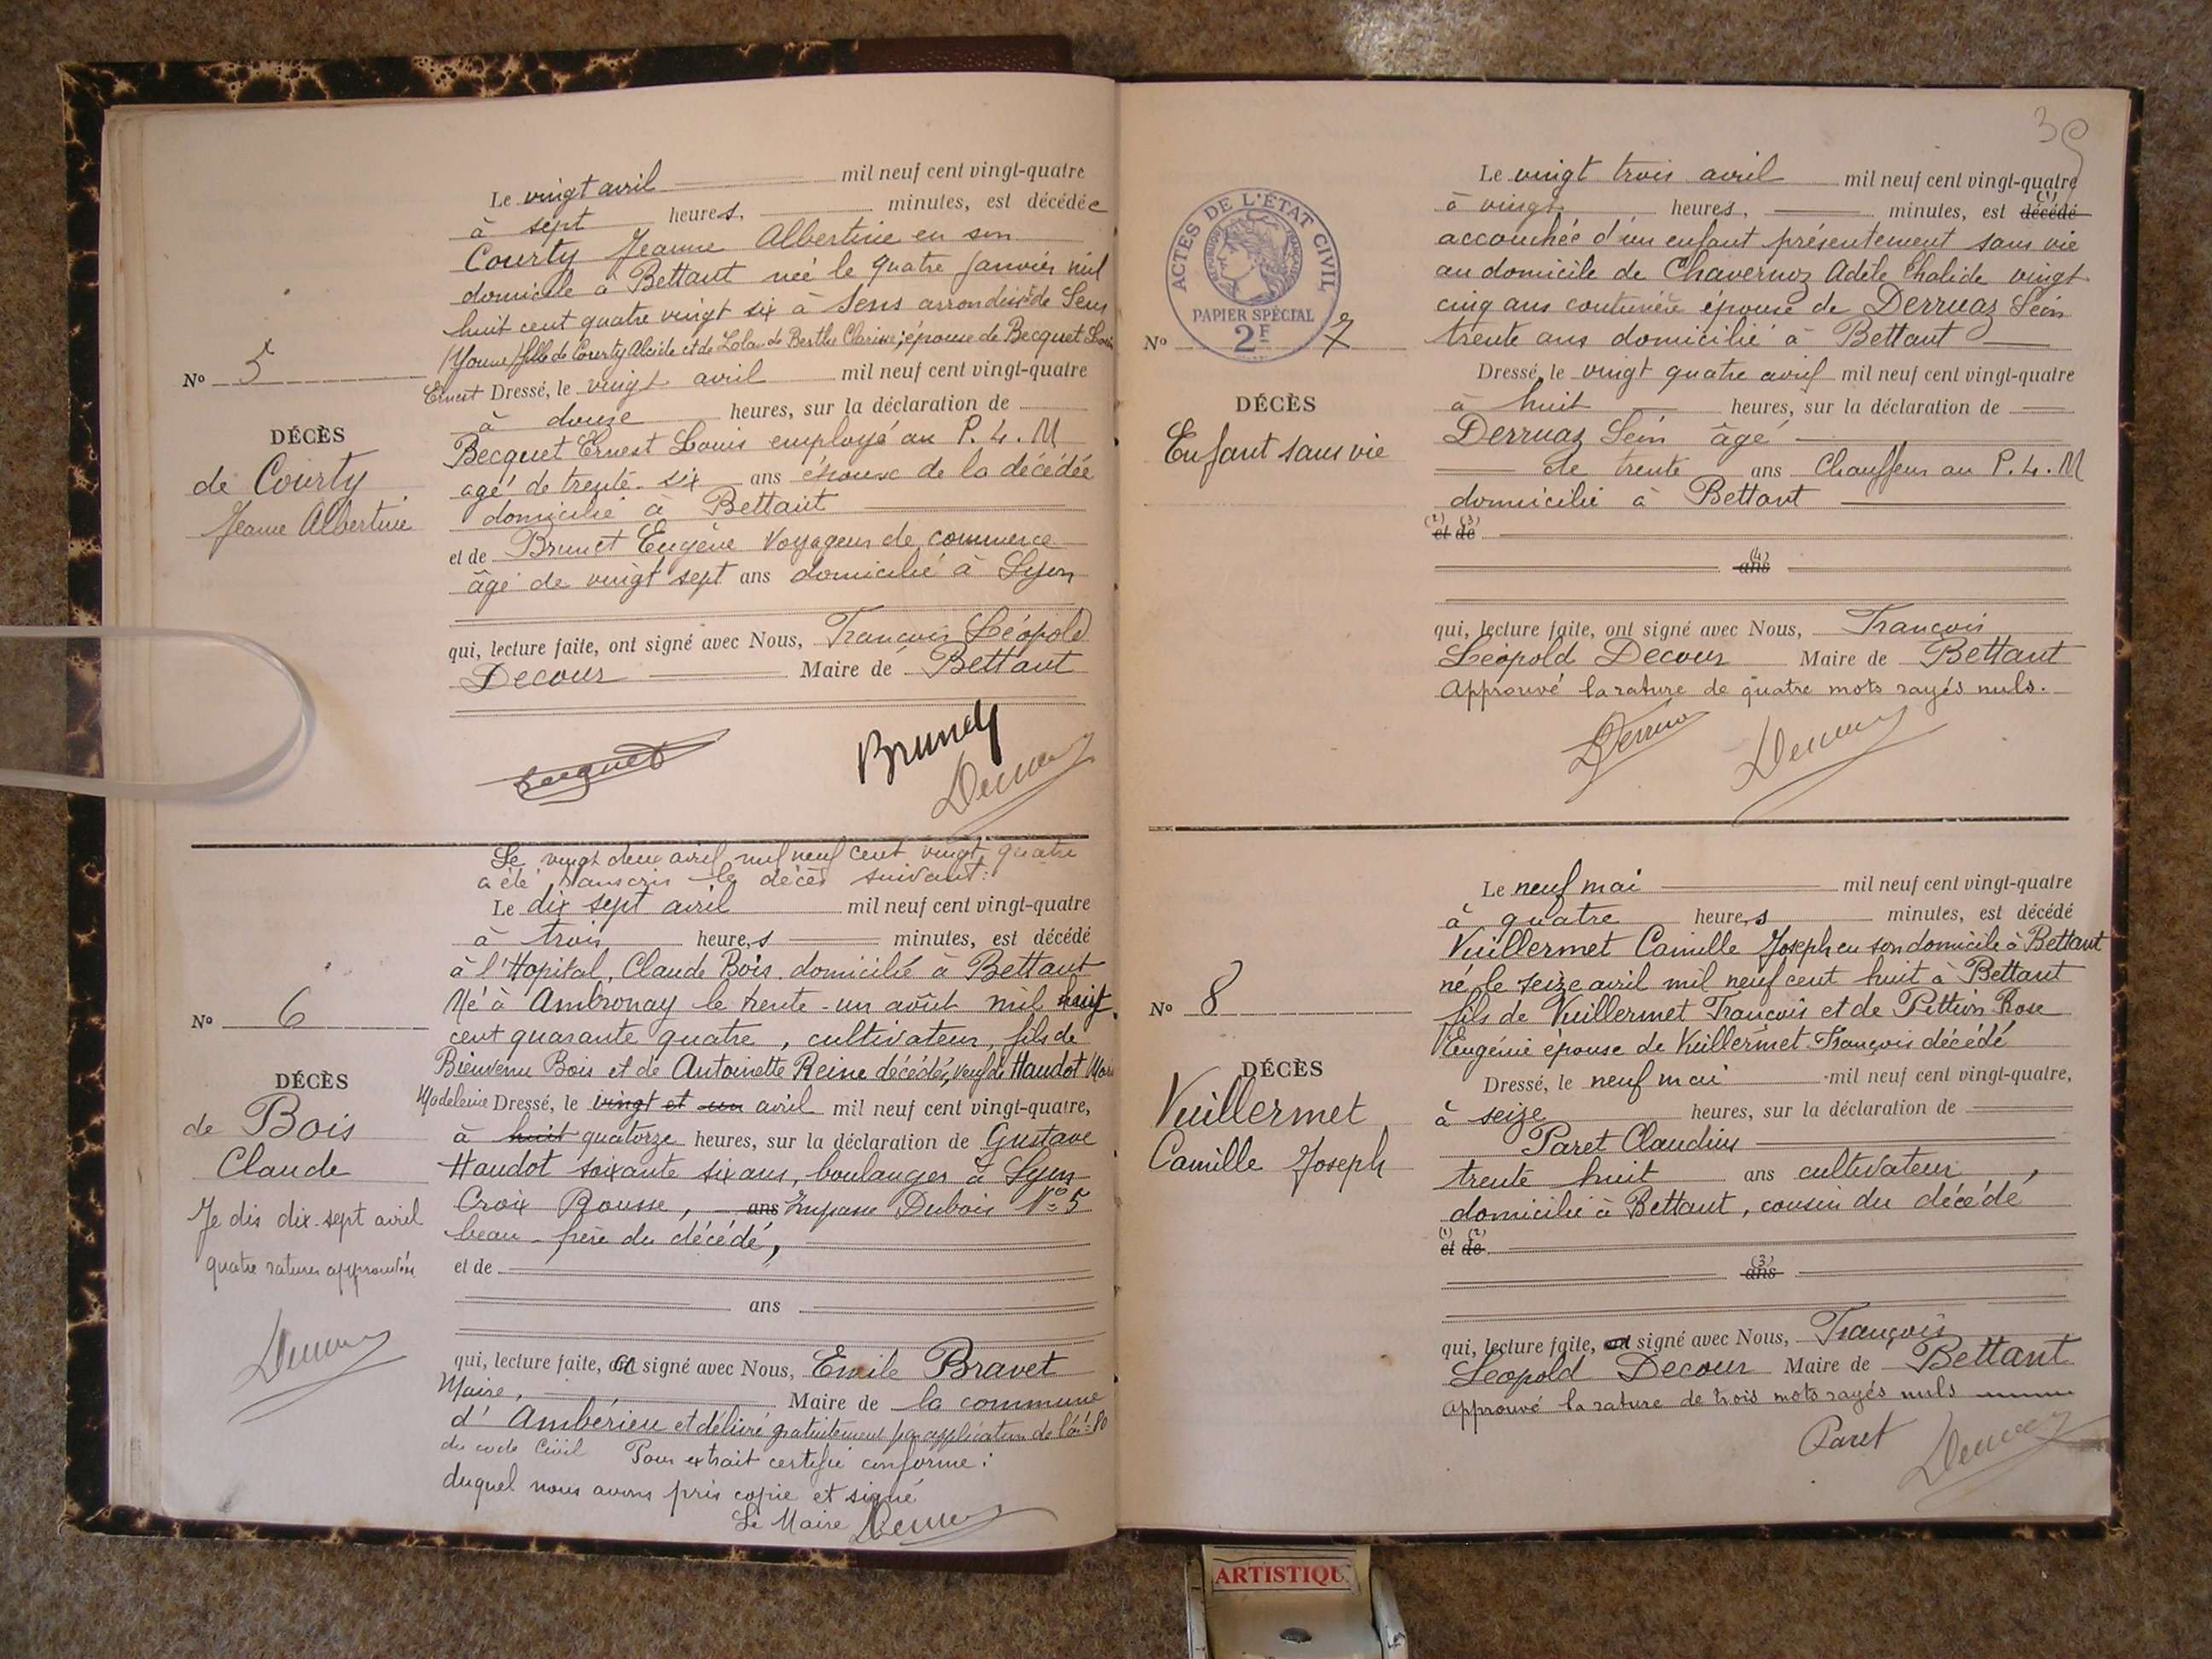 Le vingt avril mil neuf cent vingt-quatre
à sept heures, minutes, est décédée
Courty Jeanne Albertine en son
domicile à Bettant née le quatre janvier mil
huit cent quatre vingt six à Sens arrondisst de Sens
(Yonne) fille de Courty Alcide et de Berthe Clarisse; épouse de Becquet Louis
Nº 5
Ernest Dressé, le vingt avril mil neuf cent vingt-quatre
à douze heures, sur la déclaration de
DÉCÈS
de Courty
Jeanne Albertine
Becquet Ernest Louis employé au P. L. M
agé de trente-six ans épouse de la décédée
domicilié à Bettant
et de Brunet Eugène Voyageur de commerce
âgé de vingt sept ans domicilié à Lyon
qui, lecture faite, ont signé avec Nous, François Léopold
Decour Maire de Bettant
Becquet
Brunet
Decour
Le vingt deux avril mil neuf cent vingt quatre
a été transcris le décès suivant:
Le dix sept avril mil neuf cent vingt-quatre
à trois heures minutes, est décédé
à l'Hopital, Claude Bois domicilié à Bettant
Né à Ambronay le trente-un août mil huit
Nº 6
cent quarante quatre, cultivateur, fils de
Bienvenu Bois et de Antoinette Reine décédés, veuf de Haudot Marie
DÉCÈS
de Bois
Claude
Je dis dix-sept avril
quatre ratures approuvées
Decour
Madeleine Dressé, le vingt et un avril mil neuf cent vingt-quatre,
à huit quatorze heures, sur la déclaration de Gustave
Haudot soixante six ans, boulanger à Lyon
Croix Rousse, ans Impasse Dubois Nº 5
beau-frère du décédé,
et de
ans
qui, lecture faite, a signé avec Nous, Emile Bravet
Maire, Maire de la commune
d'Ambérieu et délivré gratuitement par application de l'art. 80
du code Civil Pour extrait certifié conforme:
duquel nous avons pris copie et signé
Le Maire Decour
35
Le vingt trois avril mil neuf cent vingt-quatre
(1)
à vingt heures, minutes, est décédé
accouchée d'un enfant présentement sans vie
au domicile de Chavernoz Adèle vingt
cinq ans couturière épouse de Derruaz Léon
trente ans domicilié à Bettant
ACTES DE L'ÉTAT CIVIL
RÉPUBLIQUE FRANÇAISE
PAPIER SPÉCIAL
2F
Nº 7
DÉCÈS
Enfant sans vie
Dressé, le vingt quatre avril mil neuf cent vingt-quatre
à huit heures, sur la déclaration de
Derruaz Léon âgé
de trente ans Chauffeur au P. L. M
domicilié à Bettant
(2) (3)
et de
(4)
ans
qui, lecture faite, ont signé avec Nous, François
Léopold Decour Maire de Bettant
Approuvé la rature de quatre mots rayés nuls.
Derruaz
Decour
Le neuf mai mil neuf cent vingt-quatre
à quatre heures minutes, est décédé
Vuillermet Camille Joseph en son domicile à Bettant
né le seize avril mil neuf cent huit à Bettant
Nº 8
fils de Vuillermet François et de Rose
Eugénie épouse de Vuillermet François décédé
DÉCÈS
Vuillermet
Camille Joseph
Dressé, le neuf mai mil neuf cent vingt-quatre,
à seize heures, sur la déclaration de
Paret Claudius
trente huit ans cultivateur,
domicilié à Bettant, cousin du décédé
(1) (2)
et de
(3)
ans
qui, lecture faite, a signé avec Nous, François
Léopold Decour Maire de Bettant
Approuvé la rature de trois mots rayés nuls
Paret
Decour
ARTISTIQU